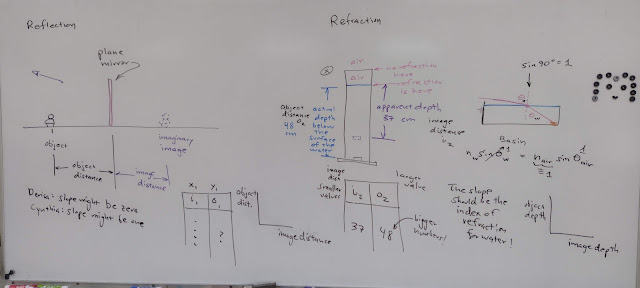 Reflection
plane
mirror
object
imaginary
image
object
distance
image
distance
Denisa: slope might be zero
Cynthia: slope might be one
x, y,
i₁ o₁
?
object
dist.
image distance
Refraction
air
air
no refraction
here
refraction
is here
object
distance
o₂
48
cm
actual
depth
below
the
surface
of the
water
apparent depth
37 cm
image
distance
i₂
image
dist.
smaller
values
larger
value
i₂ o₂
37 48
bigger
numbers!
The slope
should be the
index of
refraction
for water!
object
depth
image depth
sin 90° = 1
θa
θw
Basin
n_w sin θ_w = n_air sin θ_air
1
≡ 1